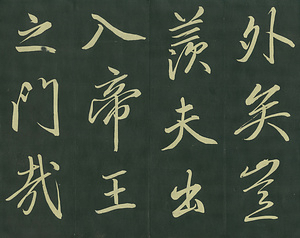 外矣豈
羨夫出
入帝王
之門哉